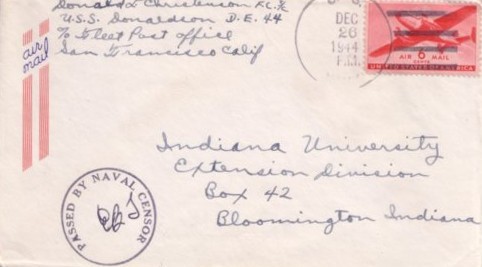 Donald L Christenson F.C. 3/c
U.S.S. Donaldson D.E. 44
% Fleet Post Office
San Francisco Calif
air
mail
U. S.
DEC
26
1944
P.M.
AIR 6 MAIL
CENTS
UNITED STATES OF AMERICA
Indiana University
Extension Division
Box 42
Bloomington Indiana
PASSED BY NAVAL CENSOR